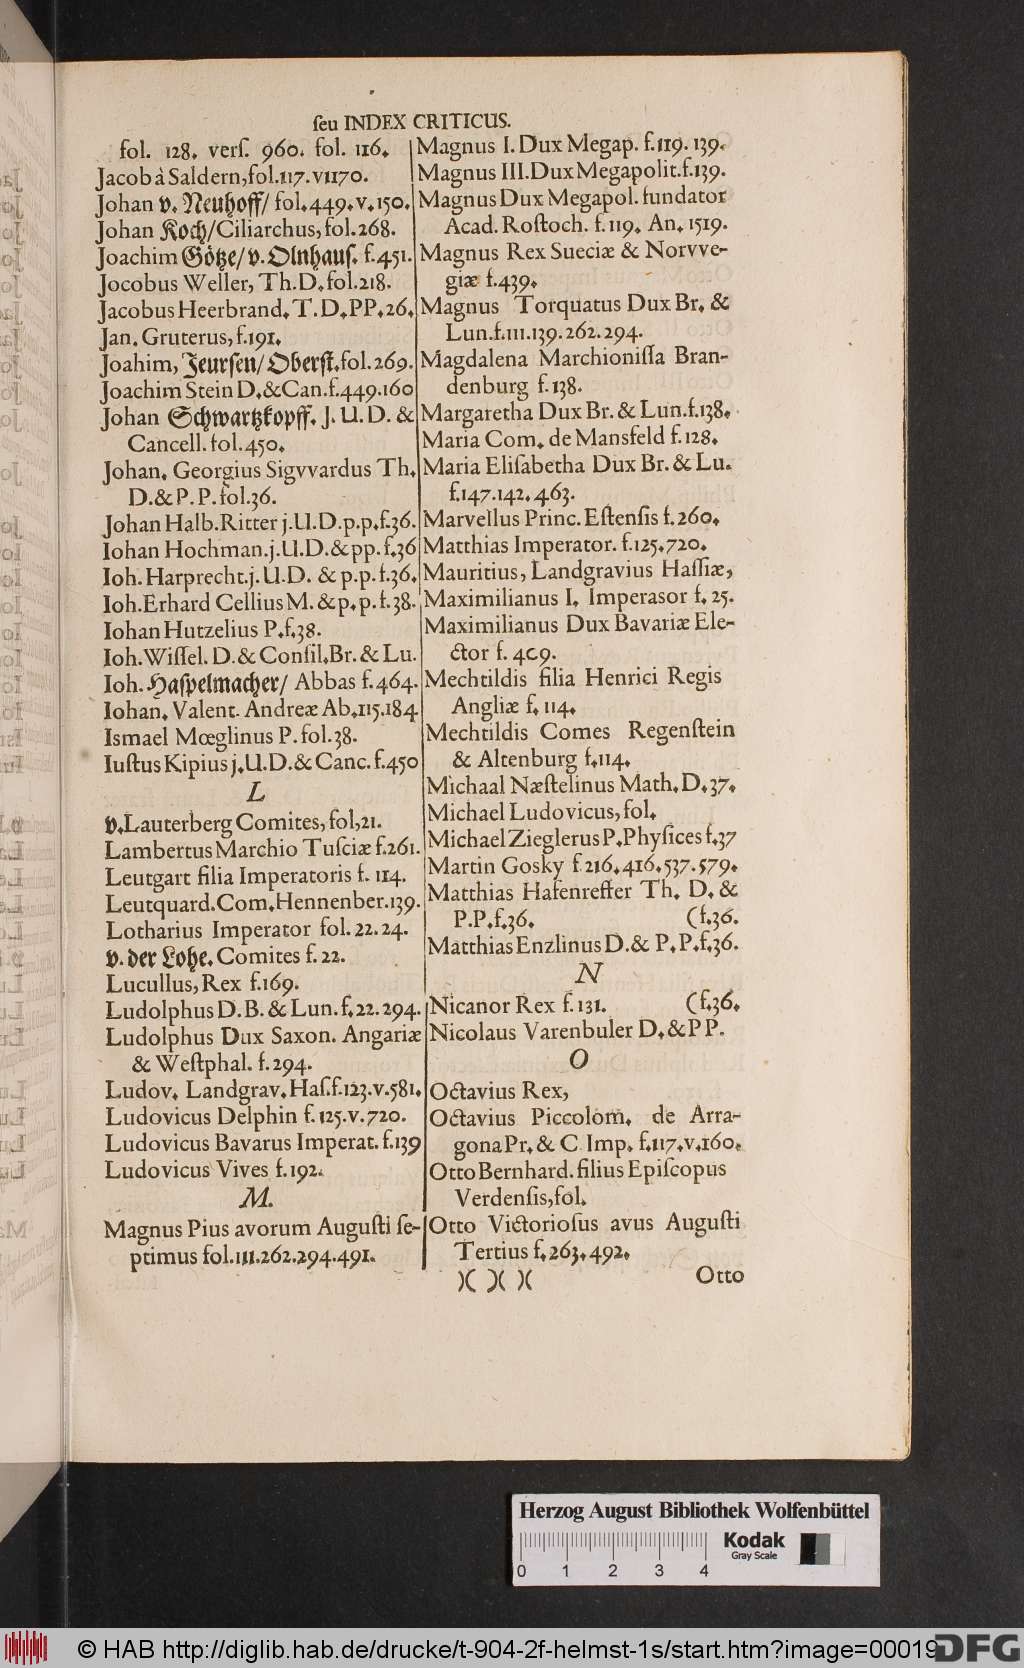 ſeu INDEX CRITICUS.
fol. 128. verſ. 960. fol. 116.
Jacob à Saldern, fol.117.v1170.
Johan v. Neuhoff/ fol.449.v.150.
Johan Koch/Ciliarchus, fol.268.
Joachim Götze/ v. Olnhauſ. f.451.
Jocobus Weller, Th.D.fol.218.
Jacobus Heerbrand. T.D.PP.26.
Jan. Gruterus, f.191.
Joahim, Jeurſen/ Oberſt.fol.269.
Joachim Stein D.&Can.f.449.160
Johan Schwartzkopff. J.U.D. &
Cancell. fol.450.
Johan. Georgius Sigvvardus Th.
D.& P.P. fol.36.
Johan Halb.Ritter j.U.D.p.p.f.36.
Iohan Hochman.j.U.D.&pp.f.36
Ioh. Harprecht.j.U.D. & p.p.f.36.
Ioh.Erhard Cellius M. &p.p.f.38.
Iohan Hutzelius P.f.38.
Ioh. Wiſſel. D.& Conſil.Br.& Lu.
Ioh. Haſpelmacher/ Abbas f.464.
Iohan. Valent. Andreæ Ab.115.184
Ismael Mœglinus P. fol.38.
Iuſtus Kipius j.U.D.& Canc. f.450
L
v.Lauterberg Comites, fol,21.
Lambertus Marchio Tuſciæ f.261.
Leutgart filia Imperatoris f. 114.
Leutquard.Com.Hennenber.139.
Lotharius Imperator fol. 22.24.
v. der Lohe. Comites f. 22.
Lucullus, Rex f.169.
Ludolphus D.B. & Lun. f.22.294.
Ludolphus Dux Saxon. Angariæ
& Weſtphal. f.294.
Ludov. Landgrav.Haſ.f.123.v.581.
Ludovicus Delphin f.125.v.720.
Ludovicus Bavarus Imperat. f.139
Ludovicus Vives f.192.
M.
Magnus Pius avorum Auguſti ſe-
ptimus fol.111.262.294.491.
Magnus I. Dux Megap. f.119. 139.
Magnus III.Dux Megapolit.f.139.
Magnus Dux Megapol. fundator
Acad. Roſtoch. f.119. An. 1519.
Magnus Rex Sueciæ & Norvve-
giæ f.439.
Magnus Torquatus Dux Br. &
Lun.f.111.139.262.294.
Magdalena Marchioniſſa Bran-
denburg f.138.
Margaretha Dux Br. & Lun.f.138.
Maria Com. de Mansfeld f.128.
Maria Eliſabetha Dux Br. & Lu.
f.147.142.463.
Marvellus Princ. Eſtenſis f.260.
Matthias Imperator. f.125.720.
Mauritius, Landgravius Haſſiæ,
Maximilianus I. Imperasor f. 25.
Maximilianus Dux Bavariæ Ele-
ctor f. 4C9.
Mechtildis filia Henrici Regis
Angliæ f. 114.
Mechtildis Comes Regenſtein
& Altenburg f.114.
Michaal Næſtelinus Math.D.37.
Michael Ludovicus, fol.
Michael Zieglerus P.Phyſices f.37
Martin Gosky f.216.416.537.579.
Matthias Hafenreffer Th. D. &
P.P.f.36. (f.36.
Matthias Enzlinus D.& P.P.f.36.
N
Nicanor Rex f.131. (f.36.
Nicolaus Varenbuler D.&PP.
O
Octavius Rex,
Octavius Piccolom. de Arra-
gona Pr.& C Imp. f.117.v.160.
Otto Bernhard. filius Epiſcopus
Verdenſis, fol.
Otto Victorioſus avus Auguſti
Tertius f.263.492.
)( )( )(
Otto
Herzog August Bibliothek Wolfenbüttel
Kodak
Gray Scale
0 1 2 3 4
© HAB http://diglib.hab.de/drucke/t-904-2f-helmst-1s/start.htm?image=00019
DFG